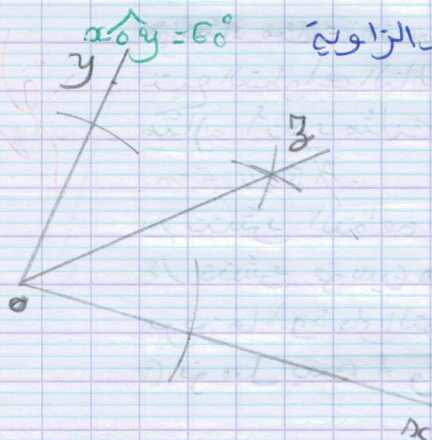 xôy = 60° الزاوية
y
z
o
x